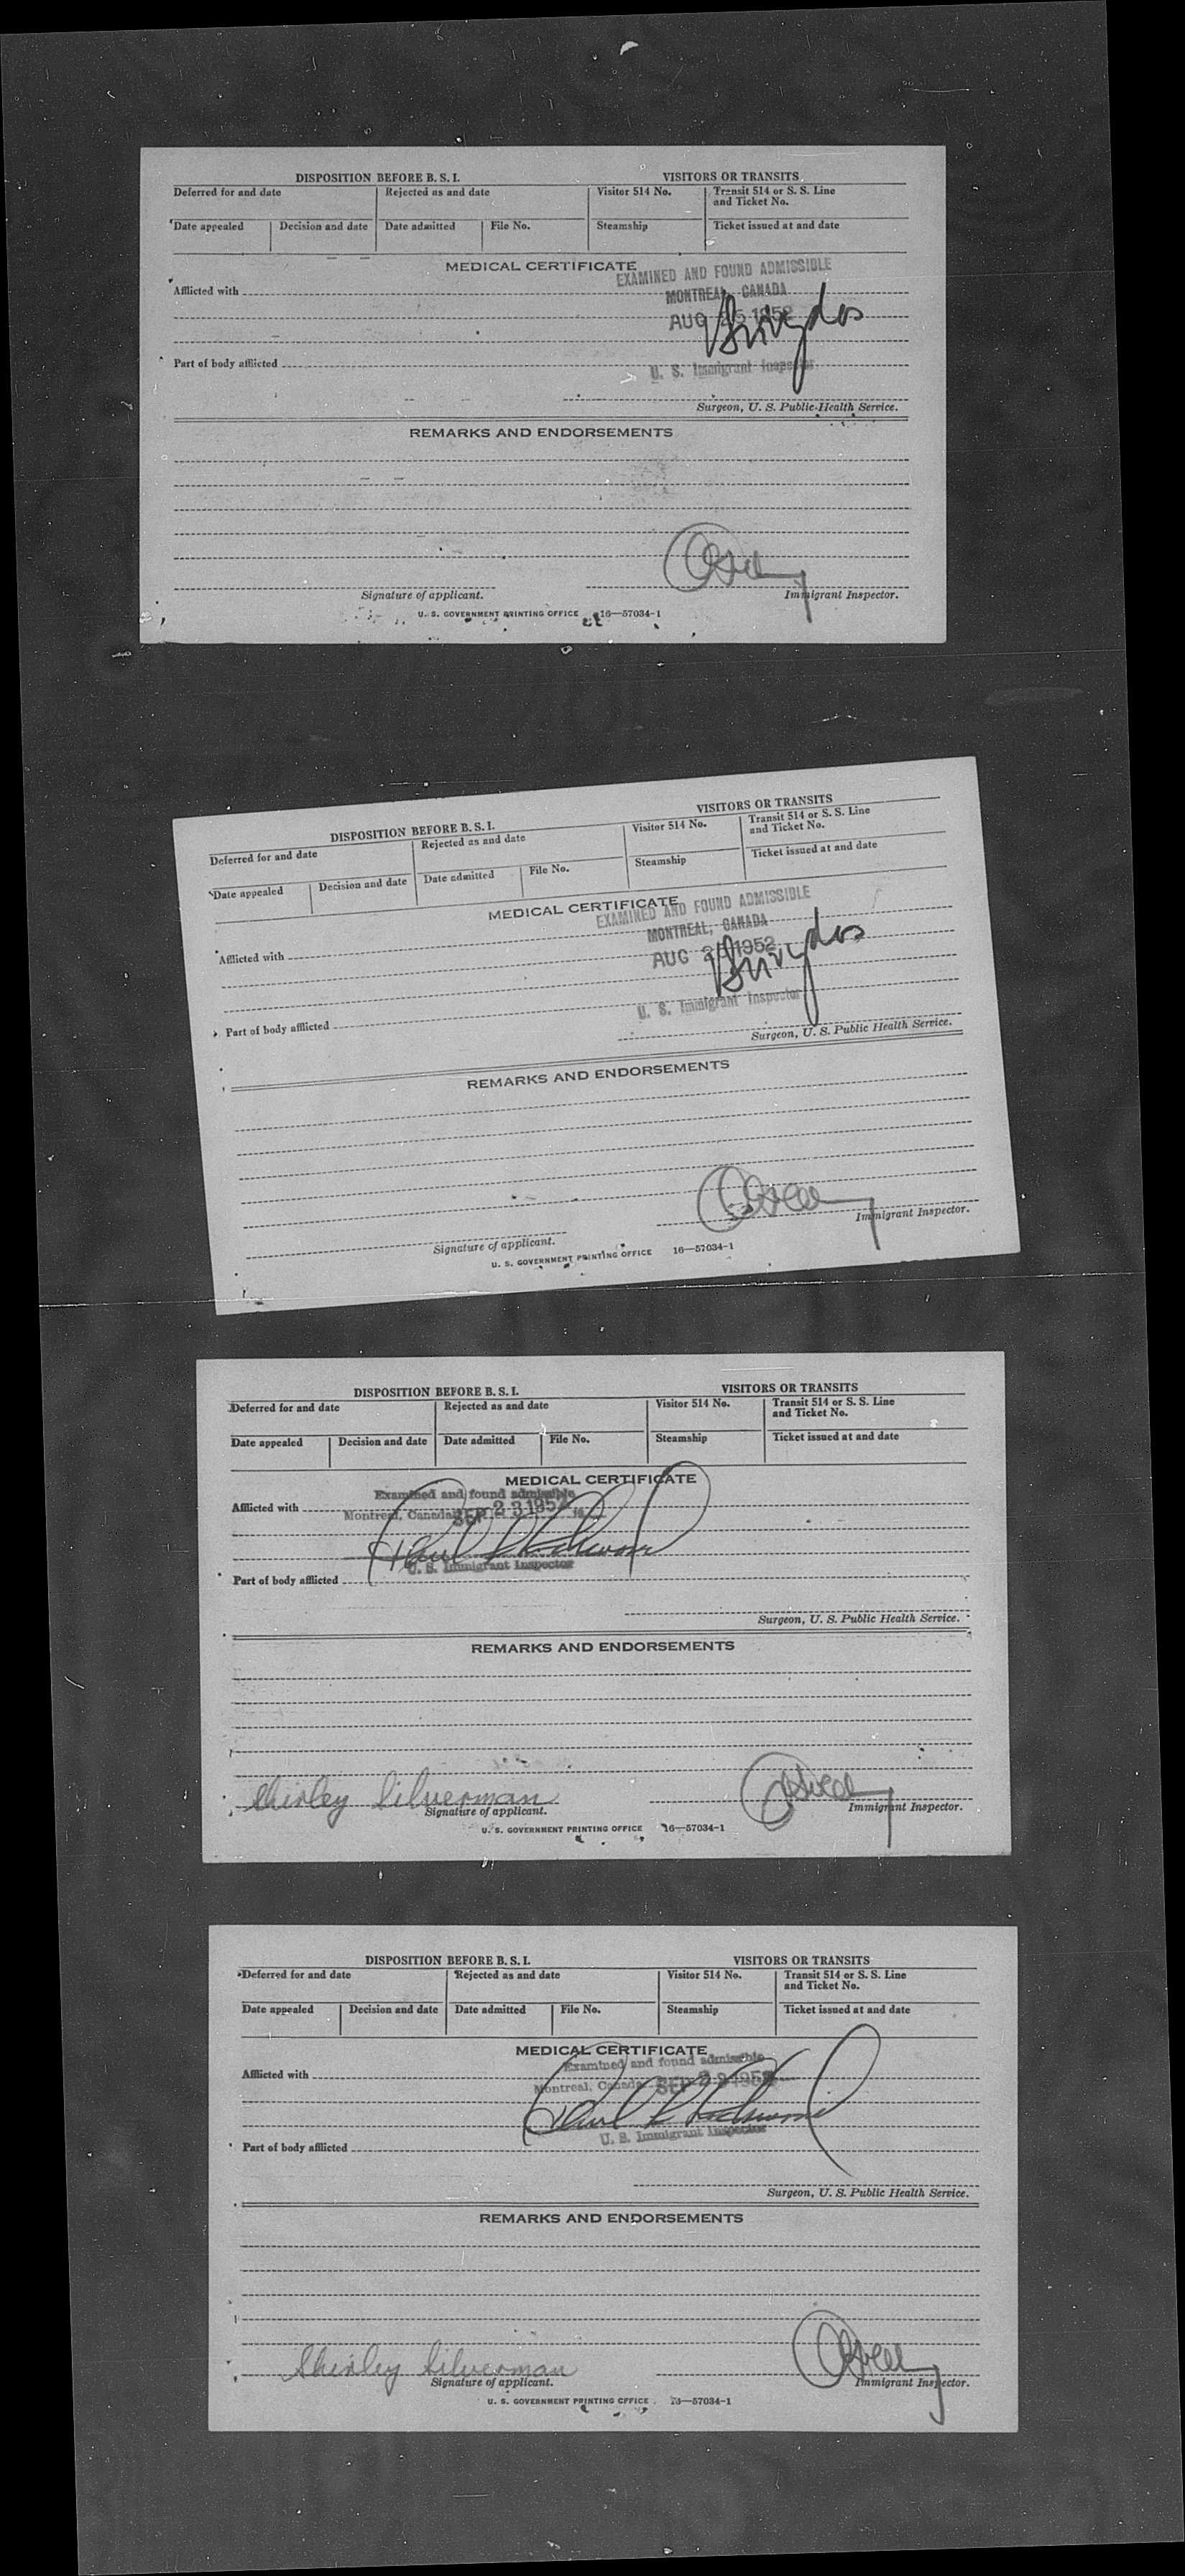 DISPOSITION BEFORE B. S. I. VISITORS OR TRANSITS
Deferred for and date Rejected as and date Visitor 514 No. Transit 514 or S. S. Line and Ticket No.
Date appealed Decision and date Date admitted File No. Steamship Ticket issued at and date
MEDICAL CERTIFICATE
EXAMINED AND FOUND ADMISSIBLE
Afflicted with
MONTREAL, CANADA
AUG 1952
Part of body afflicted
U. S. Immigrant Inspector
Surgeon, U. S. Public Health Service.
REMARKS AND ENDORSEMENTS
Signature of applicant. Immigrant Inspector.
U. S. GOVERNMENT PRINTING OFFICE 16—57034-1
DISPOSITION BEFORE B. S. I. VISITORS OR TRANSITS
Deferred for and date Rejected as and date Visitor 514 No. Transit 514 or S. S. Line and Ticket No.
Date appealed Decision and date Date admitted File No. Steamship Ticket issued at and date
MEDICAL CERTIFICATE
EXAMINED AND FOUND ADMISSIBLE
MONTREAL, CANADA
Afflicted with
AUG 1952
U. S. Immigrant Inspector
Part of body afflicted
Surgeon, U. S. Public Health Service.
REMARKS AND ENDORSEMENTS
Signature of applicant. Immigrant Inspector.
U. S. GOVERNMENT PRINTING OFFICE 16—57034-1
DISPOSITION BEFORE B. S. I. VISITORS OR TRANSITS
Deferred for and date Rejected as and date Visitor 514 No. Transit 514 or S. S. Line and Ticket No.
Date appealed Decision and date Date admitted File No. Steamship Ticket issued at and date
MEDICAL CERTIFICATE
Examined and found admissible
Afflicted with
Montreal, Canada SEP 23 1952
U. S. Immigrant Inspector
Part of body afflicted
Surgeon, U. S. Public Health Service.
REMARKS AND ENDORSEMENTS
Shirley Silverman
Signature of applicant. Immigrant Inspector.
U. S. GOVERNMENT PRINTING OFFICE 16—57034-1
DISPOSITION BEFORE B. S. I. VISITORS OR TRANSITS
Deferred for and date Rejected as and date Visitor 514 No. Transit 514 or S. S. Line and Ticket No.
Date appealed Decision and date Date admitted File No. Steamship Ticket issued at and date
MEDICAL CERTIFICATE
Examined and found admissible
Afflicted with
Montreal, Canada SEP 1952
U. S. Immigrant Inspector
Part of body afflicted
Surgeon, U. S. Public Health Service.
REMARKS AND ENDORSEMENTS
Shirley Silverman
Signature of applicant. Immigrant Inspector.
U. S. GOVERNMENT PRINTING OFFICE 16—57034-1